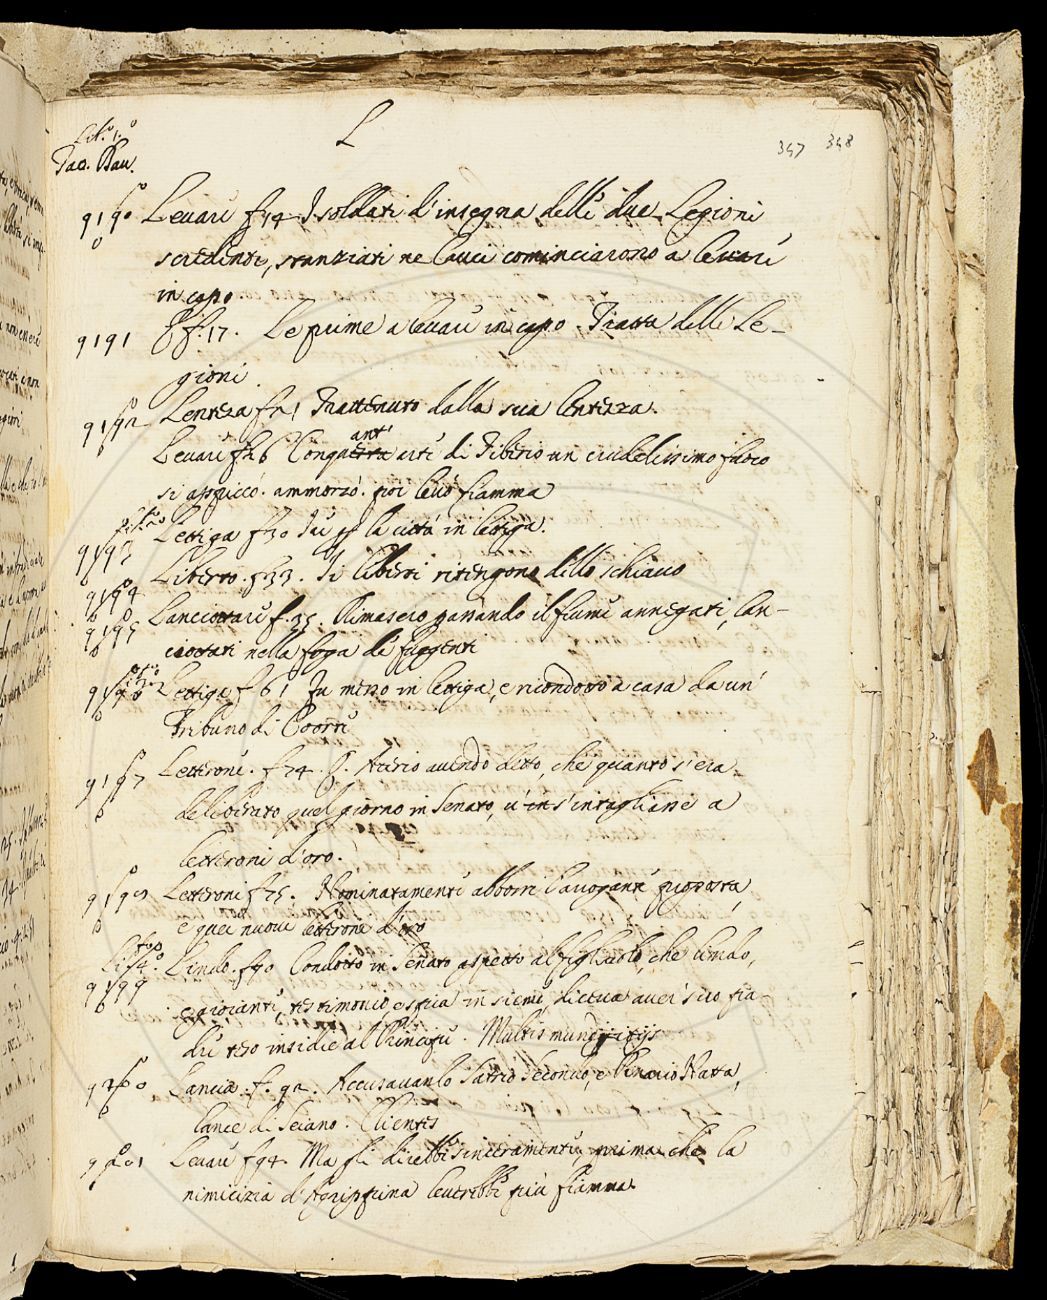 Lib.o 1.o L 347 348
Tac. Dav.
9190 Levare f 14 I soldati d'insegna delle due Legioni
scredenti, stanziati ne Cauci cominciarono a levare
in capo
9191 f. 17. Le prime a levare in capo. Tratta delle Le-
gioni.
9192 Lentezza f 21 Trattenuto dalla sua lentezza.
Levare f 26 anti di Tiberio un crudelissimo fuoco
si appicco. ammorzò. poi levò fiamma
9193 Lettiga f 30 la città in lettiga.
9194 Libero. f 33. Si liberi ritengono dello schiavo
9195 Lanciottare f. 35. Rimasero passando il fiume annegati, lan-
ciottati nella foga de' fuggenti
9196 Lettiga f 61 Fu messo in lettiga, e ricondotto a casa da un'
Tribuno di Coorte
9197 Letterone. f 74. Aterio avendo detto, che quanto s'era
deliberato quel giorno in Senato, s'intagliasse a
letteroni d'oro.
9198 Letteroni f 75. Nominatamente abborre l'arrogante proposta,
e quei nuovi letteroni d'oro
Lib.o 4.o Lindo. f 90 Condotto in Senato aspetto al figliuolo, che lindo,
9199 e gioiante, testimonio, e spia insieme, diceva aver suo pa-
dre teso insidie al Principe. Multis munditijs
9200 Lancia. f. 92. Accusavanlo Satrio Secondo, e Pinario Natta,
lance di Seiano. Clientes
9201 Levare f 94. Ma gli direbbe sinceramente, prima che la
nimicizia d'Agrippina leverebbe più fiamma.